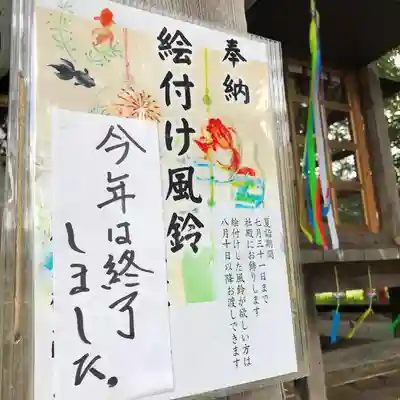 奉納
絵付け風鈴
夏詣期間
七月三十一日まで
社殿にお飾りします
絵付けした風鈴が欲しい方は
八月十日以降お渡しできます
今年は終了
しました。